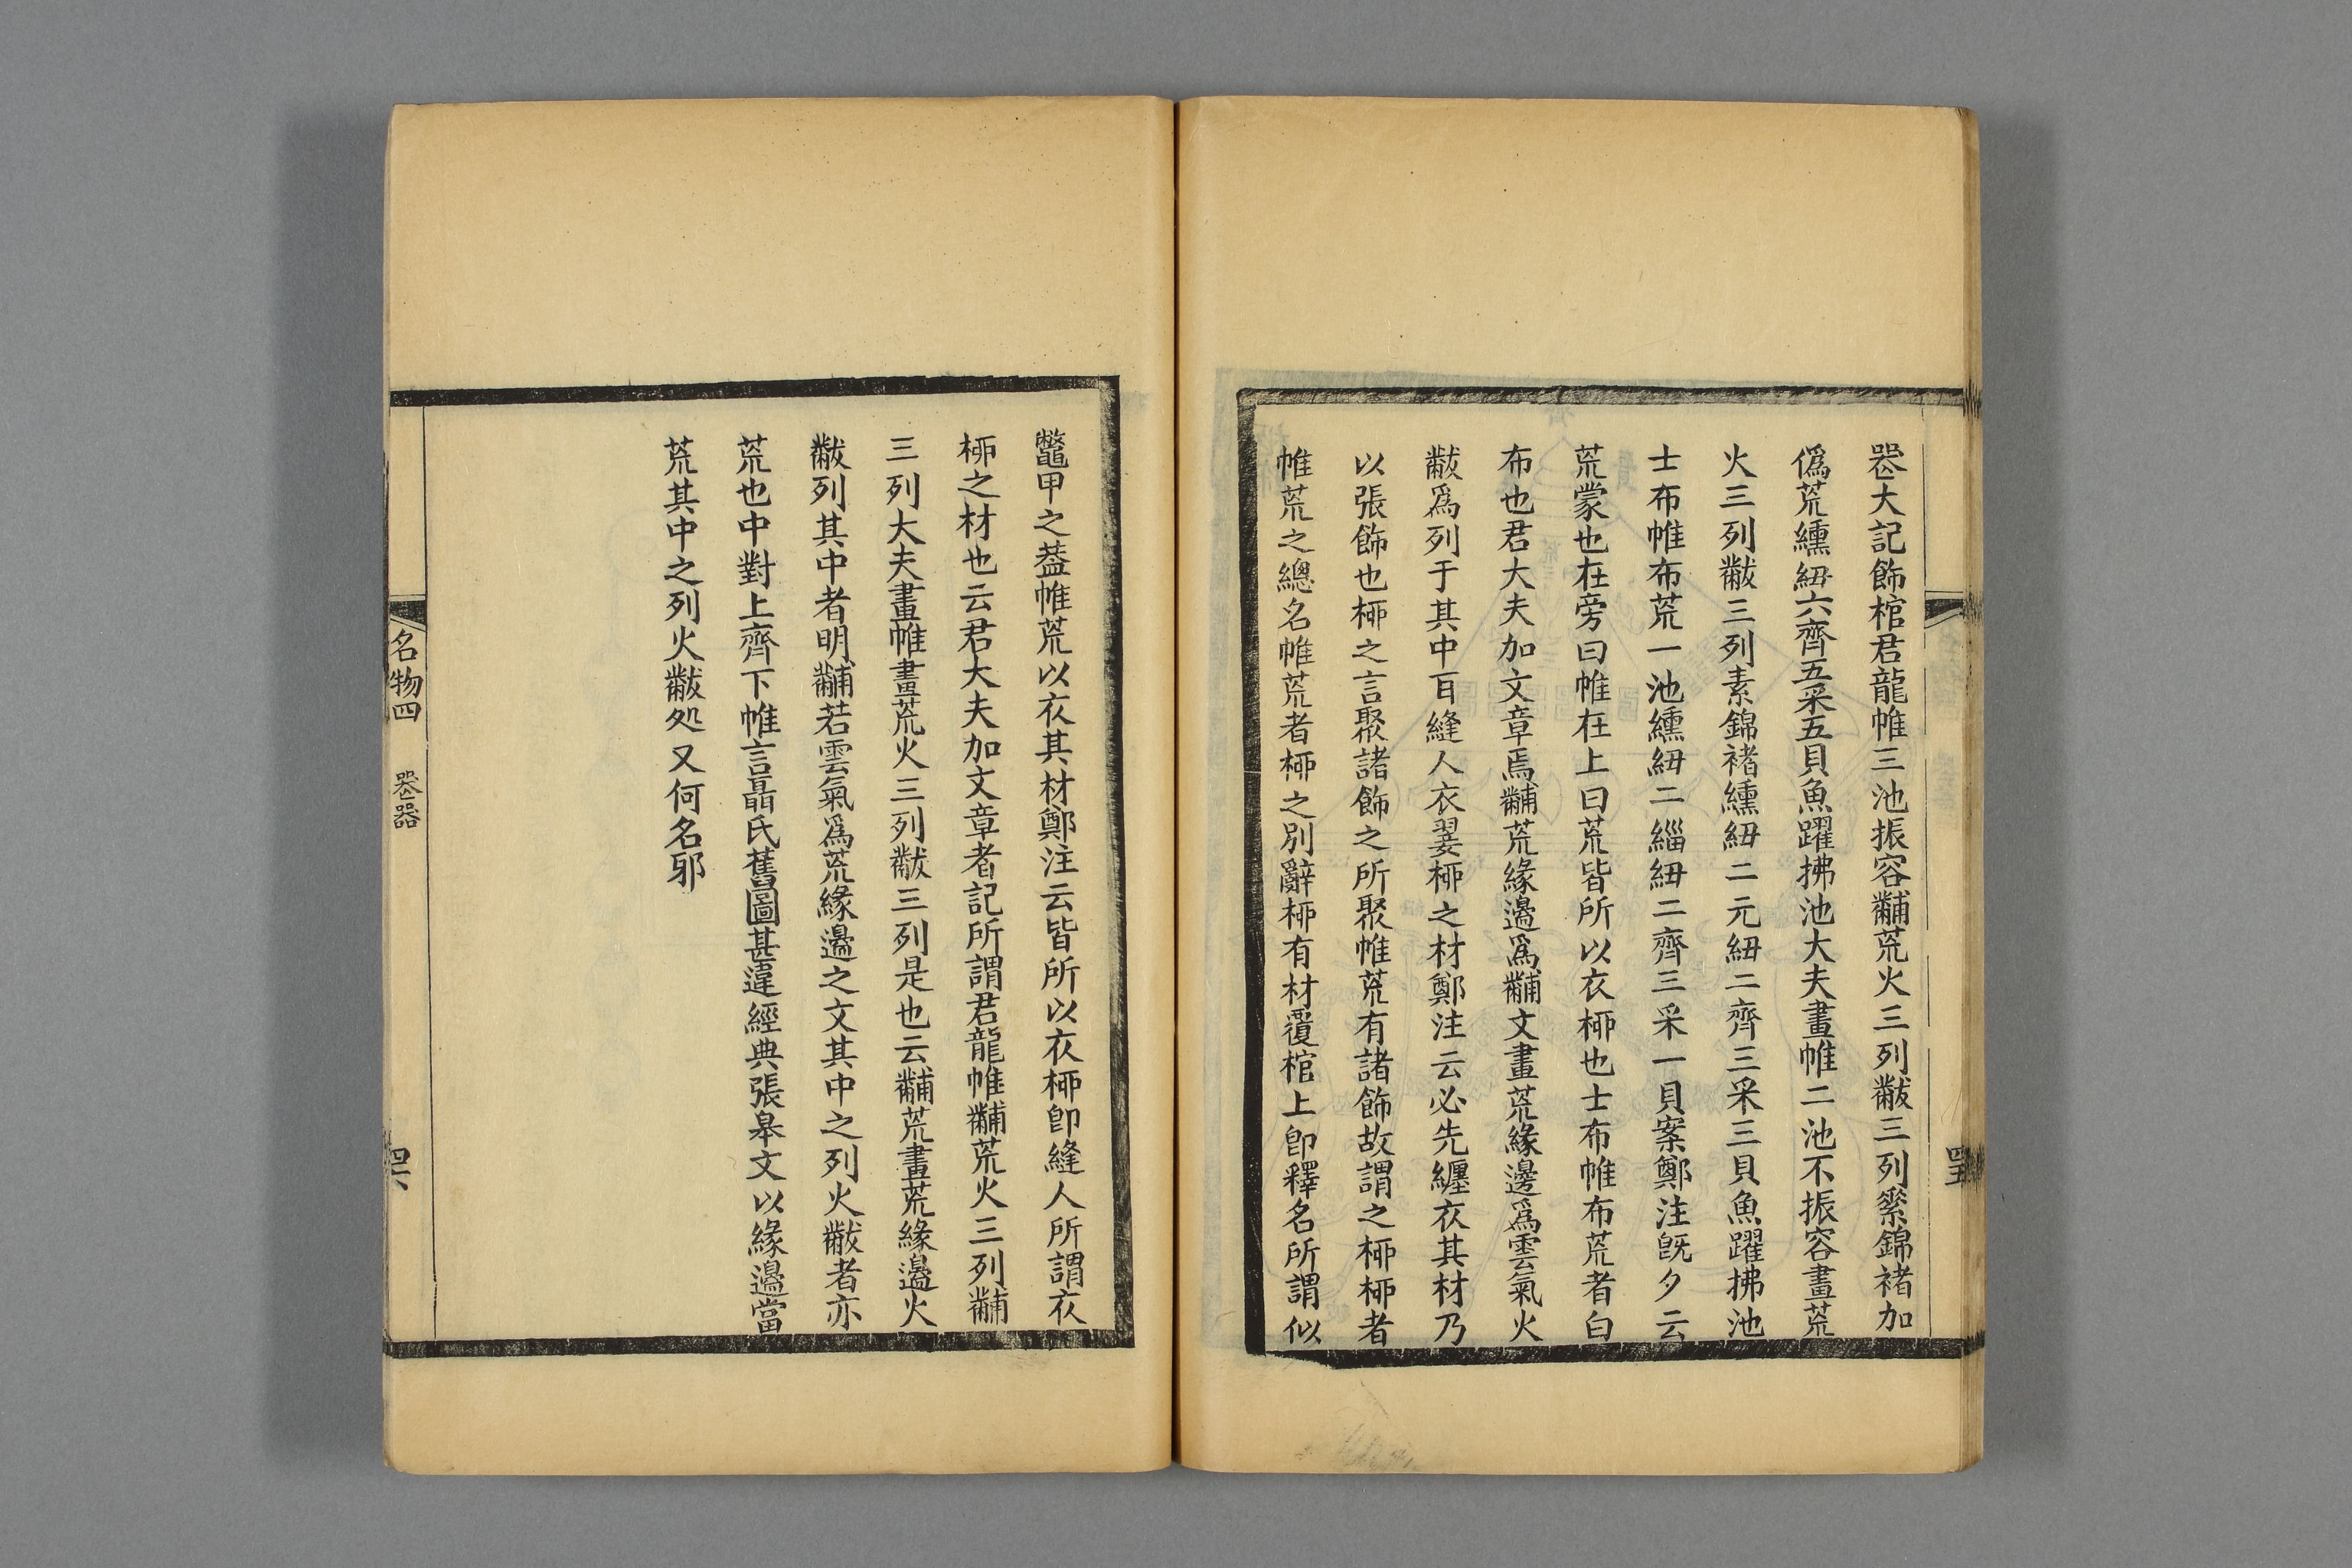 喪大記飾棺君龍帷三池振容黼荒火三列黻三列素錦褚加
僞荒纁紐六齊五采五貝魚躍拂池大夫畫帷二池不振容畫荒
火三列黻三列素錦褚纁紐二元紐二齊三采三貝魚躍拂池
士布帷布荒一池纁紐二緇紐二齊三采一貝案鄭注旣夕云
荒蒙也在旁曰帷在上曰荒皆所以衣桺也士布帷布荒者白
布也君大夫加文章焉黼荒緣邊爲黼文畫荒緣邊爲雲氣火
黻爲列于其中耳縫人衣翣桺之材鄭注云必先纏衣其材乃
以張飾也桺之言聚諸飾之所聚帷荒有諸飾故謂之桺桺者
帷荒之總名帷荒者桺之別辭桺有材覆棺上卽釋名所謂似
鼈甲之葢帷荒以衣其材鄭注云皆所以衣桺卽縫人所謂衣
桺之材也云君大夫加文章者記所謂君龍帷黼荒火三列黼
三列大夫畫帷畫荒火三列黻三列是也云黼荒畫荒緣邊火
黻列其中者明黼若雲氣爲荒緣邊之文其中之列火黻者亦
荒也中對上齊下帷言聶氏舊圖甚違經典張皋文以緣邊當
荒其中之列火黻処又何名邪
名物四 喪器
四五
四六